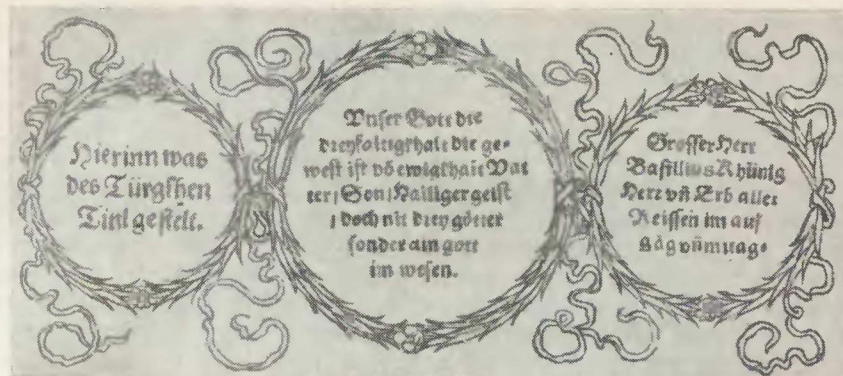 Hierinn was
des Türgkhen
Titl gestelt.
Vnser Gott die
dreyfaltigkhait die ge-
west ist vō ewigkhait Vat
ter / Son / Hailiger geist
/ doch nit drey götter
sonder ain gott
im wesen.
Grosser Herr
Basillius Khünig
Herr vn̄ Erb aller
Reissen im auf
gāg vn̄